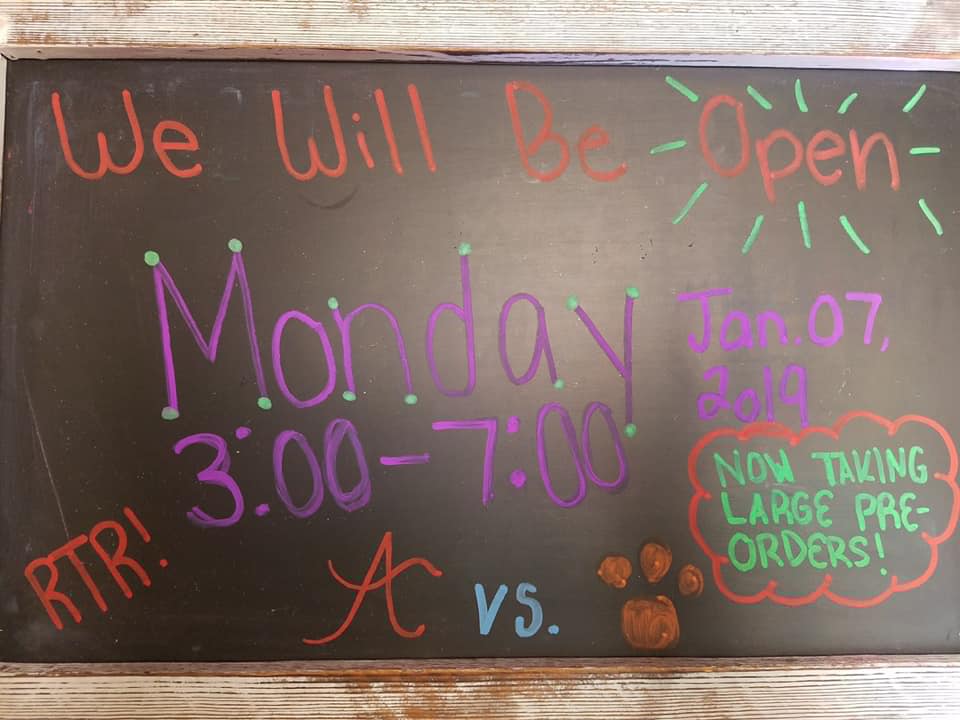 We Will Be Open
Monday
Jan. 07,
2019
3:00 - 7:00
NOW TAKING
LARGE PRE-
ORDERS!
RTR!
A VS.